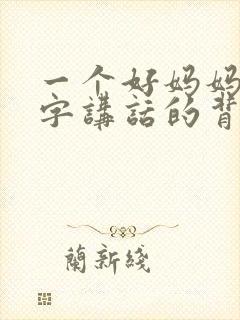 一个好妈妈
字講話的背
蘭新綫